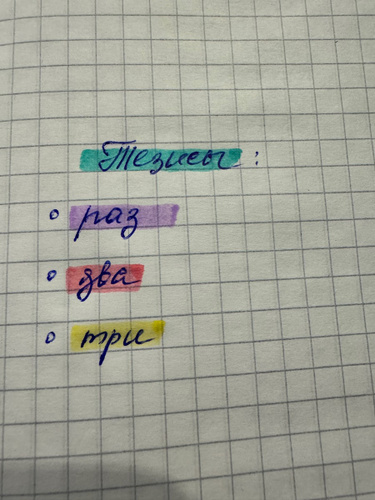 Тезисы:
• раз
• два
• три